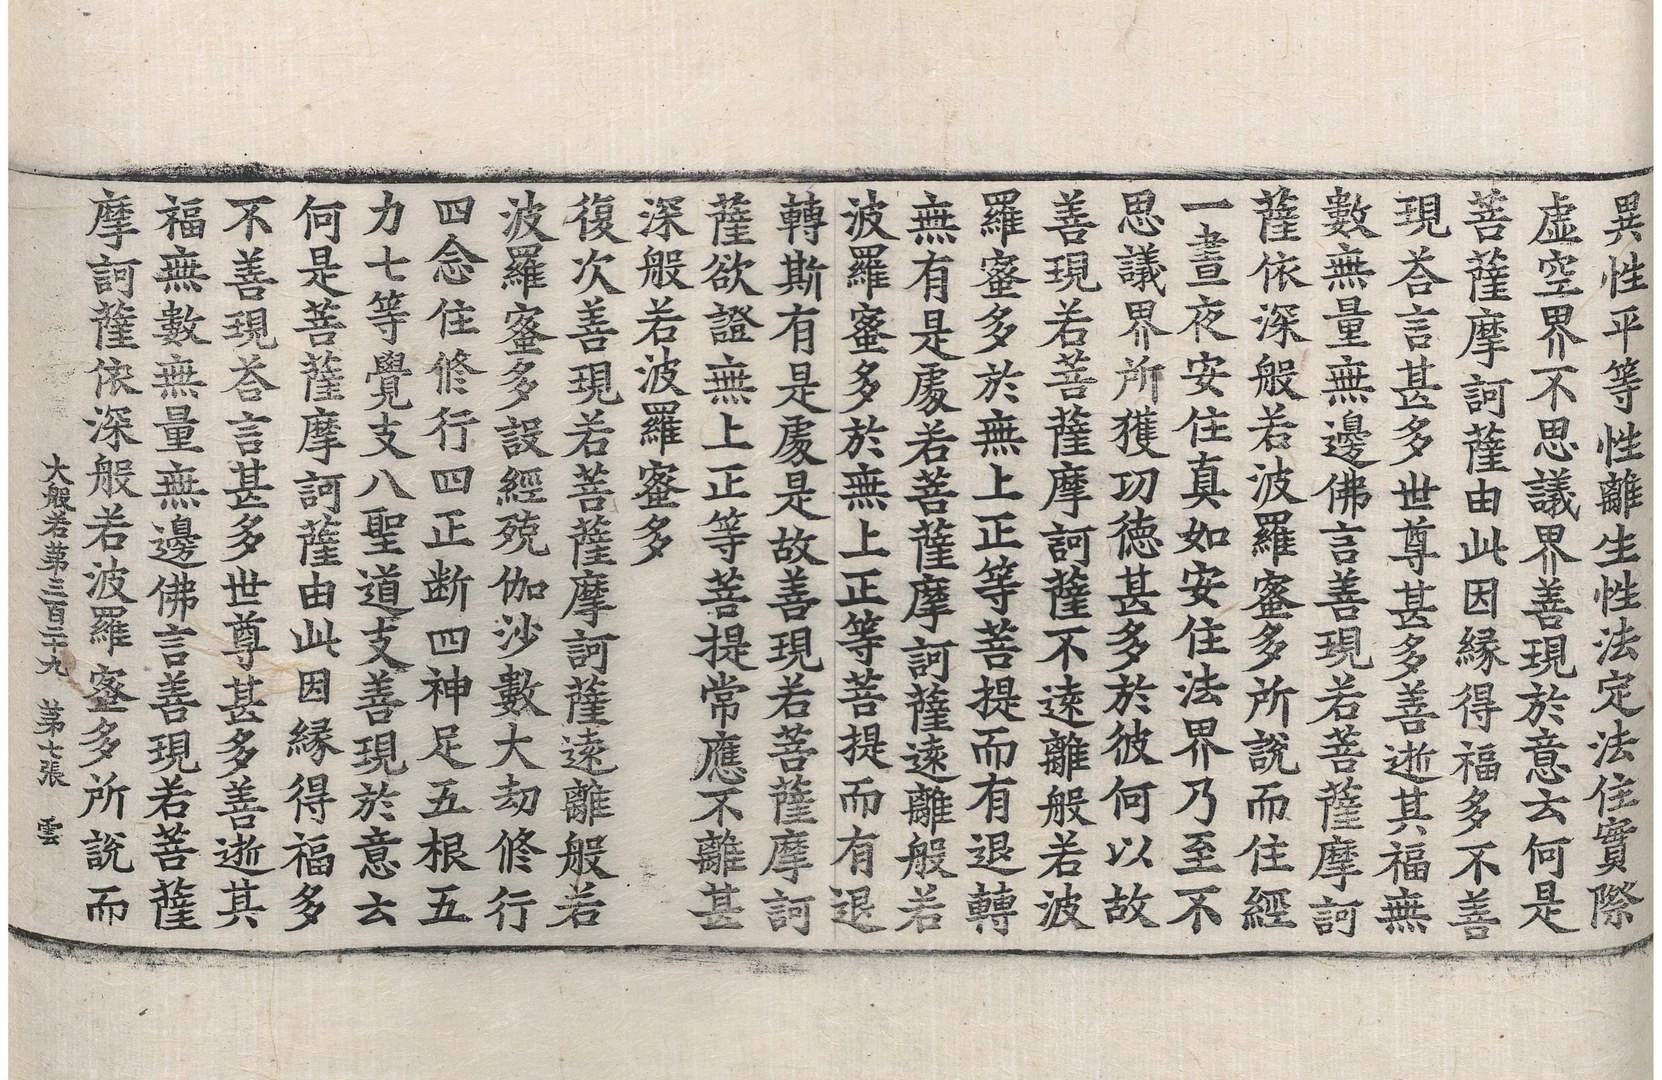 異性平等性離生性法定法住實際
虛空界不思議界善現於意云何是
菩薩摩訶薩由此因緣得福多不善
現荅言甚多世尊甚多善逝其福無
數無量無邊佛言善現若菩薩摩訶
薩依深般若波羅蜜多所說而住經
一晝夜安住真如安住法界乃至不
思議界所獲功德甚多於彼何以故
善現若菩薩摩訶薩不遠離般若波
羅蜜多於無上正等菩提而有退轉
無有是處若菩薩摩訶薩遠離般若
波羅蜜多於無上正等菩提而有退
轉斯有是處是故善現若菩薩摩訶
薩欲證無上正等菩提常應不離甚
深般若波羅蜜多
復次善現若菩薩摩訶薩遠離般若
波羅蜜多設經殑伽沙數大劫修行
四念住修行四正断四神足五根五
力七等覺支八聖道支善現於意云
何是菩薩摩訶薩由此因緣得福多
不善現荅言甚多世尊甚多善逝其
福無數無量無邊佛言善現若菩薩
摩訶薩依深般若波羅蜜多所說而
大般若第三百二十九　第七張　雲